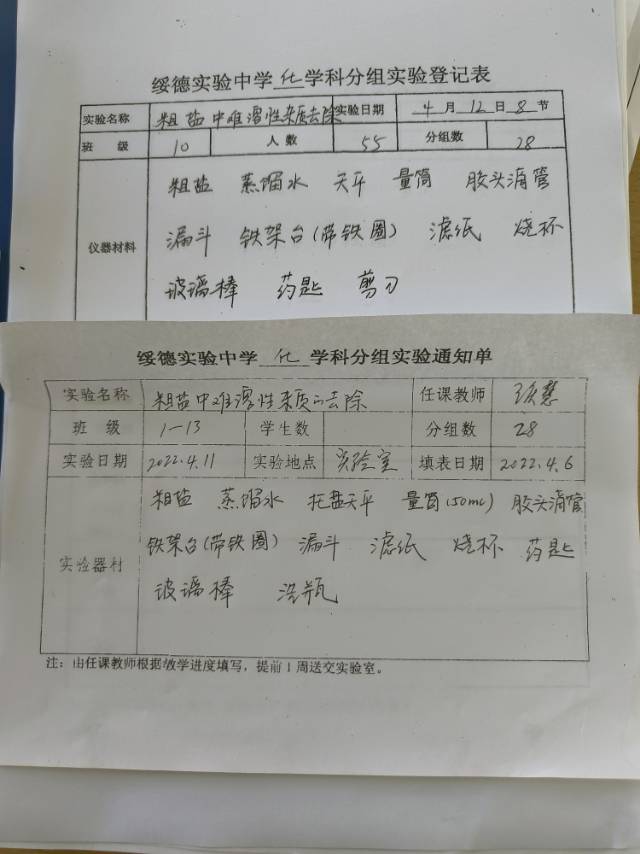 绥德实验中学 化 学科分组实验登记表
实验名称 粗盐中难溶性杂质去除 实验日期 4 月 12 日 8 节
班 级 10 人 数 55 分组数 28
粗盐 蒸馏水 天平 量筒 胶头滴管
仪器材料 漏斗 铁架台(带铁圈) 滤纸 烧杯
玻璃棒 药匙 剪刀
绥德实验中学 化 学科分组实验通知单
实验名称 粗盐中难溶性杂质的去除 任课教师
班 级 1-13 学生数 分组数 28
实验日期 2022.4.11 实验地点 实验室 填表日期 2022.4.6
粗盐 蒸馏水 托盘天平 量筒(50mL) 胶头滴管
铁架台(带铁圈) 漏斗 滤纸 烧杯 药匙
实验器材
玻璃棒
注：由任课教师根据教学进度填写，提前1周送交实验室。